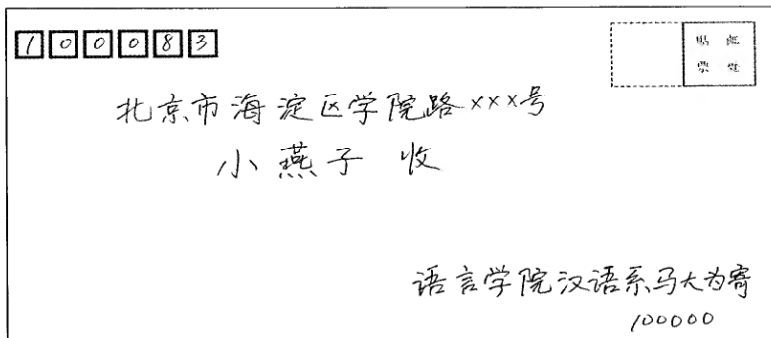 100083
贴 邮
票 处
北京市海淀区学院路×××号
小燕子 收
语言学院汉语系马大为寄
100000